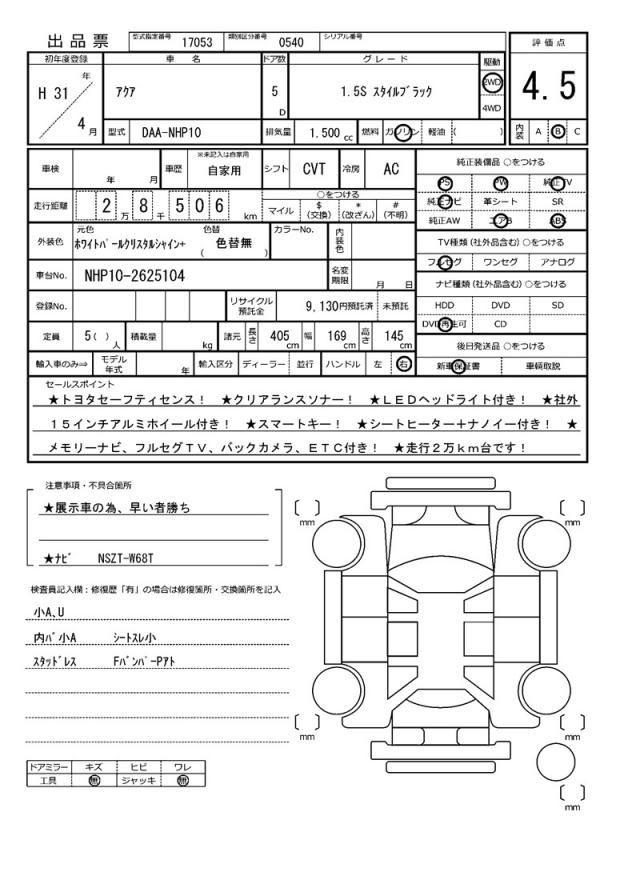 出品票 型式指定番号 17053 類別区分番号 0540 シリアル番号
評価点
4.5
内装 A B C
初年度登録 車名 ドア数 グレード 駆動
H 31 年 4 月
アクア 5 D 1.5S スタイルブラック 2WD 4WD
型式 DAA-NHP10 排気量 1.500 cc 燃料 ガソリン 軽油 ( )
車検 年 月 車歴 ※未記入は自家用 自家用 シフト CVT 冷房 AC
純正装備品 ○をつける
PS PW 純正TV
純正ナビ 革シート SR
純正AW エアB ABS
走行距離 2 万 8 千 5 0 6 km
○をつける
マイル $ (交換) * (改ざん) # (不明)
外装色 元色 ホワイトパールクリスタルシャイン+ 色替 ( 色替無 ) カラーNo. 内装色
TV種類 (社外品含む) ○をつける
フルセグ ワンセグ アナログ
車台No. NHP10-2625104 名変期限 月 日
ナビ種類 (社外品含む) ○をつける
HDD DVD SD
DVD再生可 CD
登録No. リサイクル預託金 9,130円預託済 未預託
定員 5( ) 人 積載量 kg 諸元 長さ 405 cm 幅 169 cm 高さ 145 cm
後日発送品 ○をつける
新車保証書 車輌取説
輸入車のみ⇒ モデル年式 年 輸入区分 ディーラー 並行 ハンドル 左 右
セールスポイント
★トヨタセーフティセンス! ★クリアランスソナー! ★LEDヘッドライト付き! ★社外
15インチアルミホイール付き! ★スマートキー! ★シートヒーター+ナノイー付き! ★
メモリーナビ、フルセグTV、バックカメラ、ETC付き! ★走行2万km台です!
注意事項・不具合箇所
★展示車の為、早い者勝ち
★ナビ NSZT-W68T
検査員記入欄:修復歴「有」の場合は修復箇所・交換箇所を記入
小A、U
内バ小A シートスレ小
スタッドレス Fバンパーアト
ドアミラー キズ ヒビ ワレ
工具 無 ジャッキ 無
[ ] mm
[ ] mm
[ ] mm
[ ] mm
[ ] mm